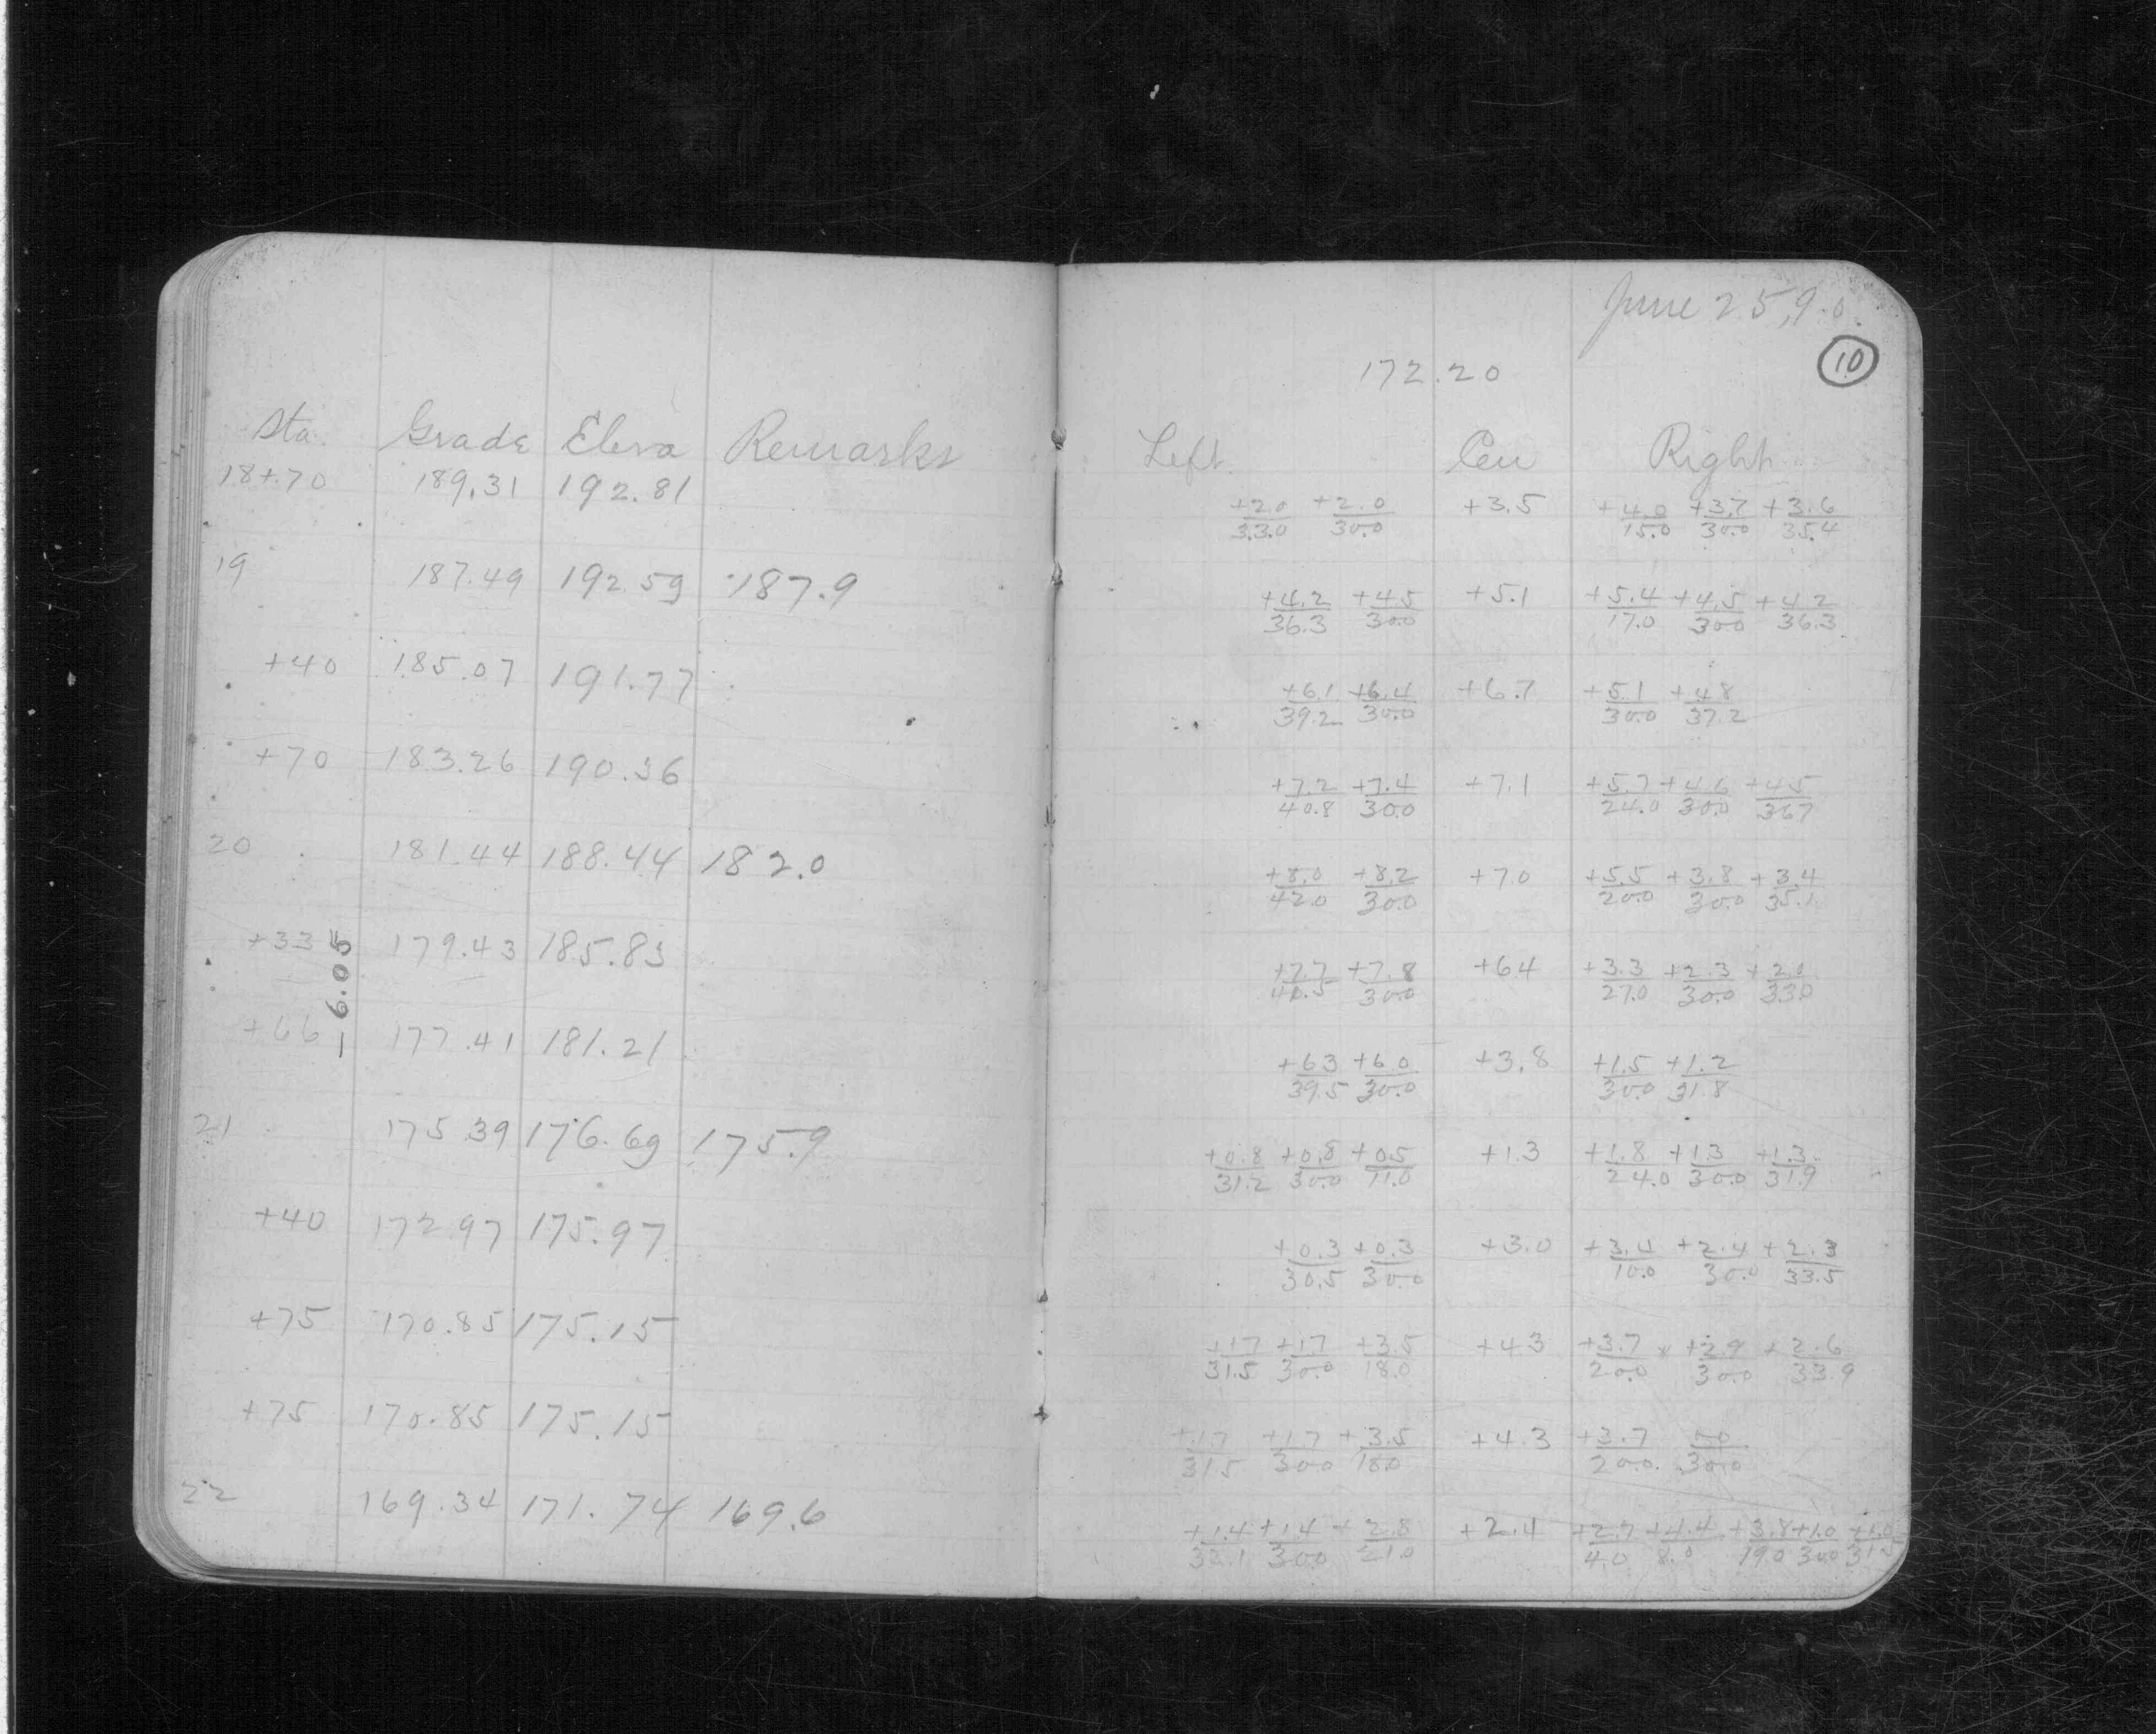 Sta. Grade Eleva Remarks
18+70 189.31 192.81
19 187.49 192.59 187.9
+40 185.07 191.77
+70 183.26 190.36
20 181.44 188.44 182.0
+33 179.43 185.83
- 6.05
+66 177.41 181.21
21 175.39 176.69 175.9
+40 172.97 175.97
+75 170.85 175.15
+75 170.85 175.15
22 169.34 171.74 169.6
June 25,
10
172.20
Left Cen Right
+2.0 +2.0 +3.5 +4.0 +3.7 +3.6
33.0 30.0 15.0 30.0 35.4
+4.2 +4.5 +5.1 +5.4 +4.5 +4.2
36.3 30.0 17.0 30.0 36.3
+6.1 +6.4 +6.7 +5.1 +4.8
39.2 30.0 30.0 37.2
+7.2 +7.4 +7.1 +5.7 +4.6 +4.5
40.8 30.0 24.0 30.0 36.7
+8.0 +8.2 +7.0 +5.5 +3.8 +3.4
42.0 30.0 20.0 30.0 35.1
+7.7 +7.8 +6.4 +3.3 +2.3 +2.0
41.5 30.0 27.0 30.0 33.0
+6.3 +6.0 +3.8 +1.5 +1.2
39.5 30.0 30.0 31.8
+0.8 +0.8 +0.5 +1.3 +1.8 +1.3 +1.3
31.2 30.0 11.0 24.0 30.0 31.9
+0.3 +0.3 +3.0 +3.4 +2.4 +2.3
30.5 30.0 10.0 30.0 33.5
+1.7 +1.7 +3.5 +4.3 +3.7 +2.9 +2.6
31.5 30.0 18.0 20.0 30.0 33.9
+1.7 +1.7 +3.5 +4.3 +3.7 0.0
31.5 30.0 18.0 20.0 30.0
+1.4 +1.4 +2.8 +2.4 +2.7 +4.4 +3.8 +1.0 +1.0
32.1 30.0 21.0 4.0 8.0 19.0 30.0 31.5